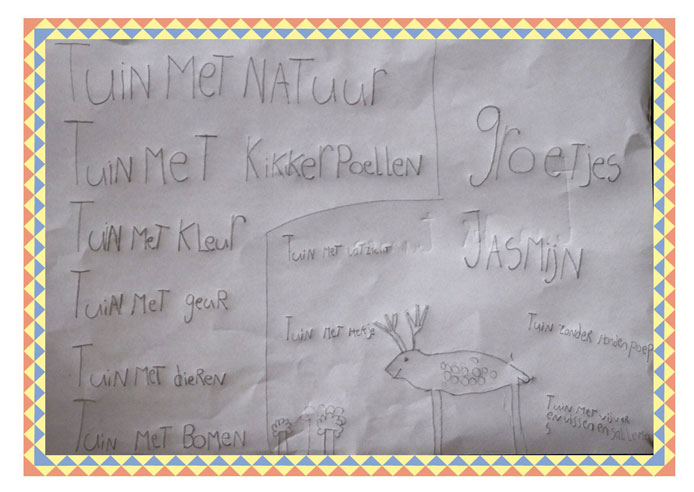 TUIN MET NATUUR
TUIN MET KIKKERPOELLEN
TUIN MET KLEUR
TUIN MET GEUR
TUIN MET DIEREN
TUIN MET BOMEN
TUIN MET
TUIN MET HERTJE
groetjes
JASMIJN
TUIN zonder hondenpoep
TUIN MET
en vissen en